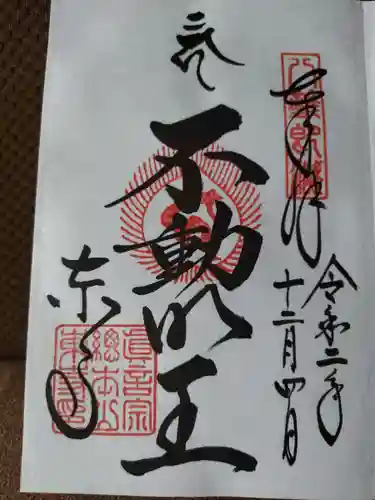 奉拝
令和二年
十二月四日
不動明王
東寺
眞言宗
總本山